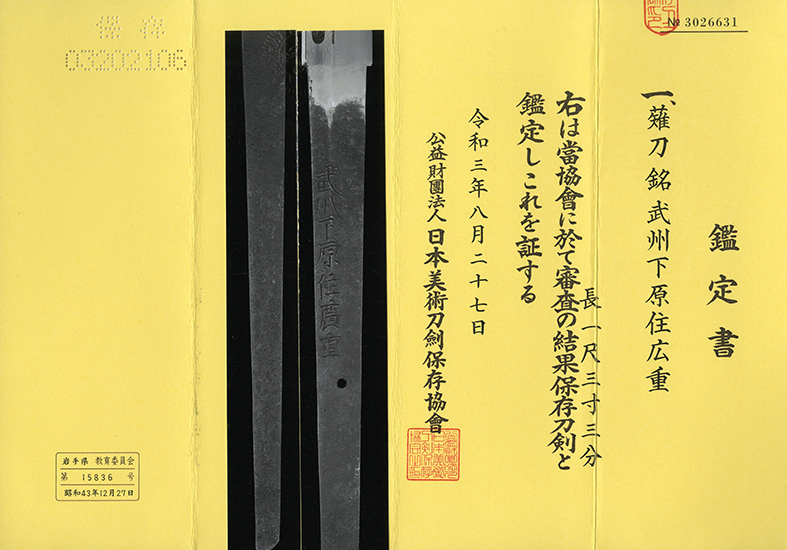 № 3026631
鑑定書
一、薙刀 銘 武州下原住広重
長一尺三寸三分
右は當協會に於て審査の結果保存刀剣と
鑑定しこれを証する
令和三年八月二十七日
公益財團法人 日本美術刀劍保存協會
武州下原住廣重
保存
03202106
岩手県 教育委員会
第 15836 号
昭和43年12月27日